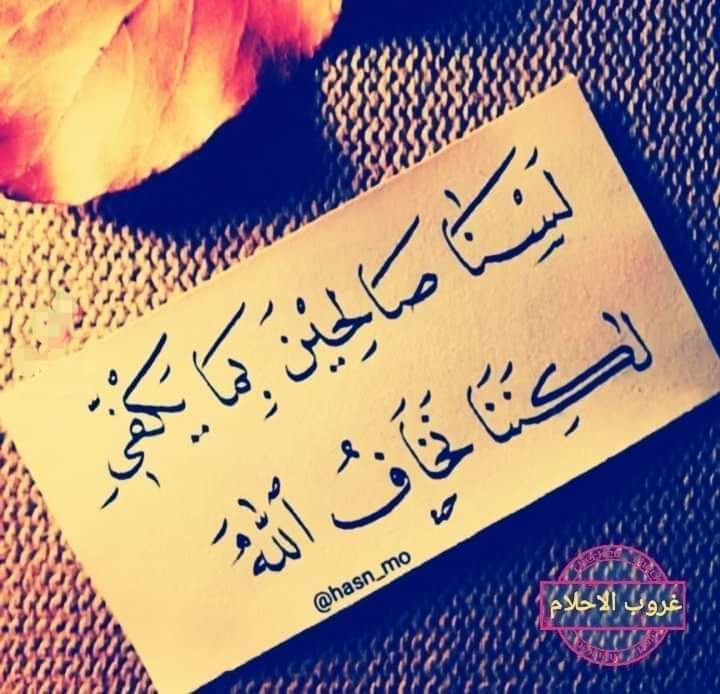 لَيْسْنَا صَالِحِيْنَ بِمَا يَكْفِيْ
لَكِنَنَا نَخَافُ اللّٰهَ
@hasn_mo
غروب الاحلام